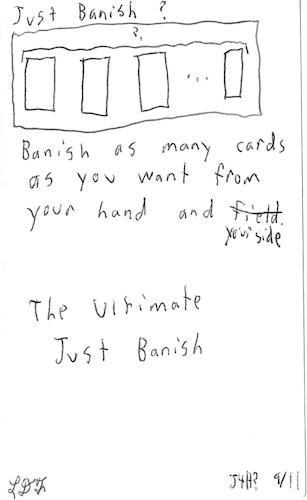 Just Banish ?
?.
...
Banish as many cards
as you want from
your hand and field.
your side
The Ultimate
Just Banish
LDF
J4H? 9/11